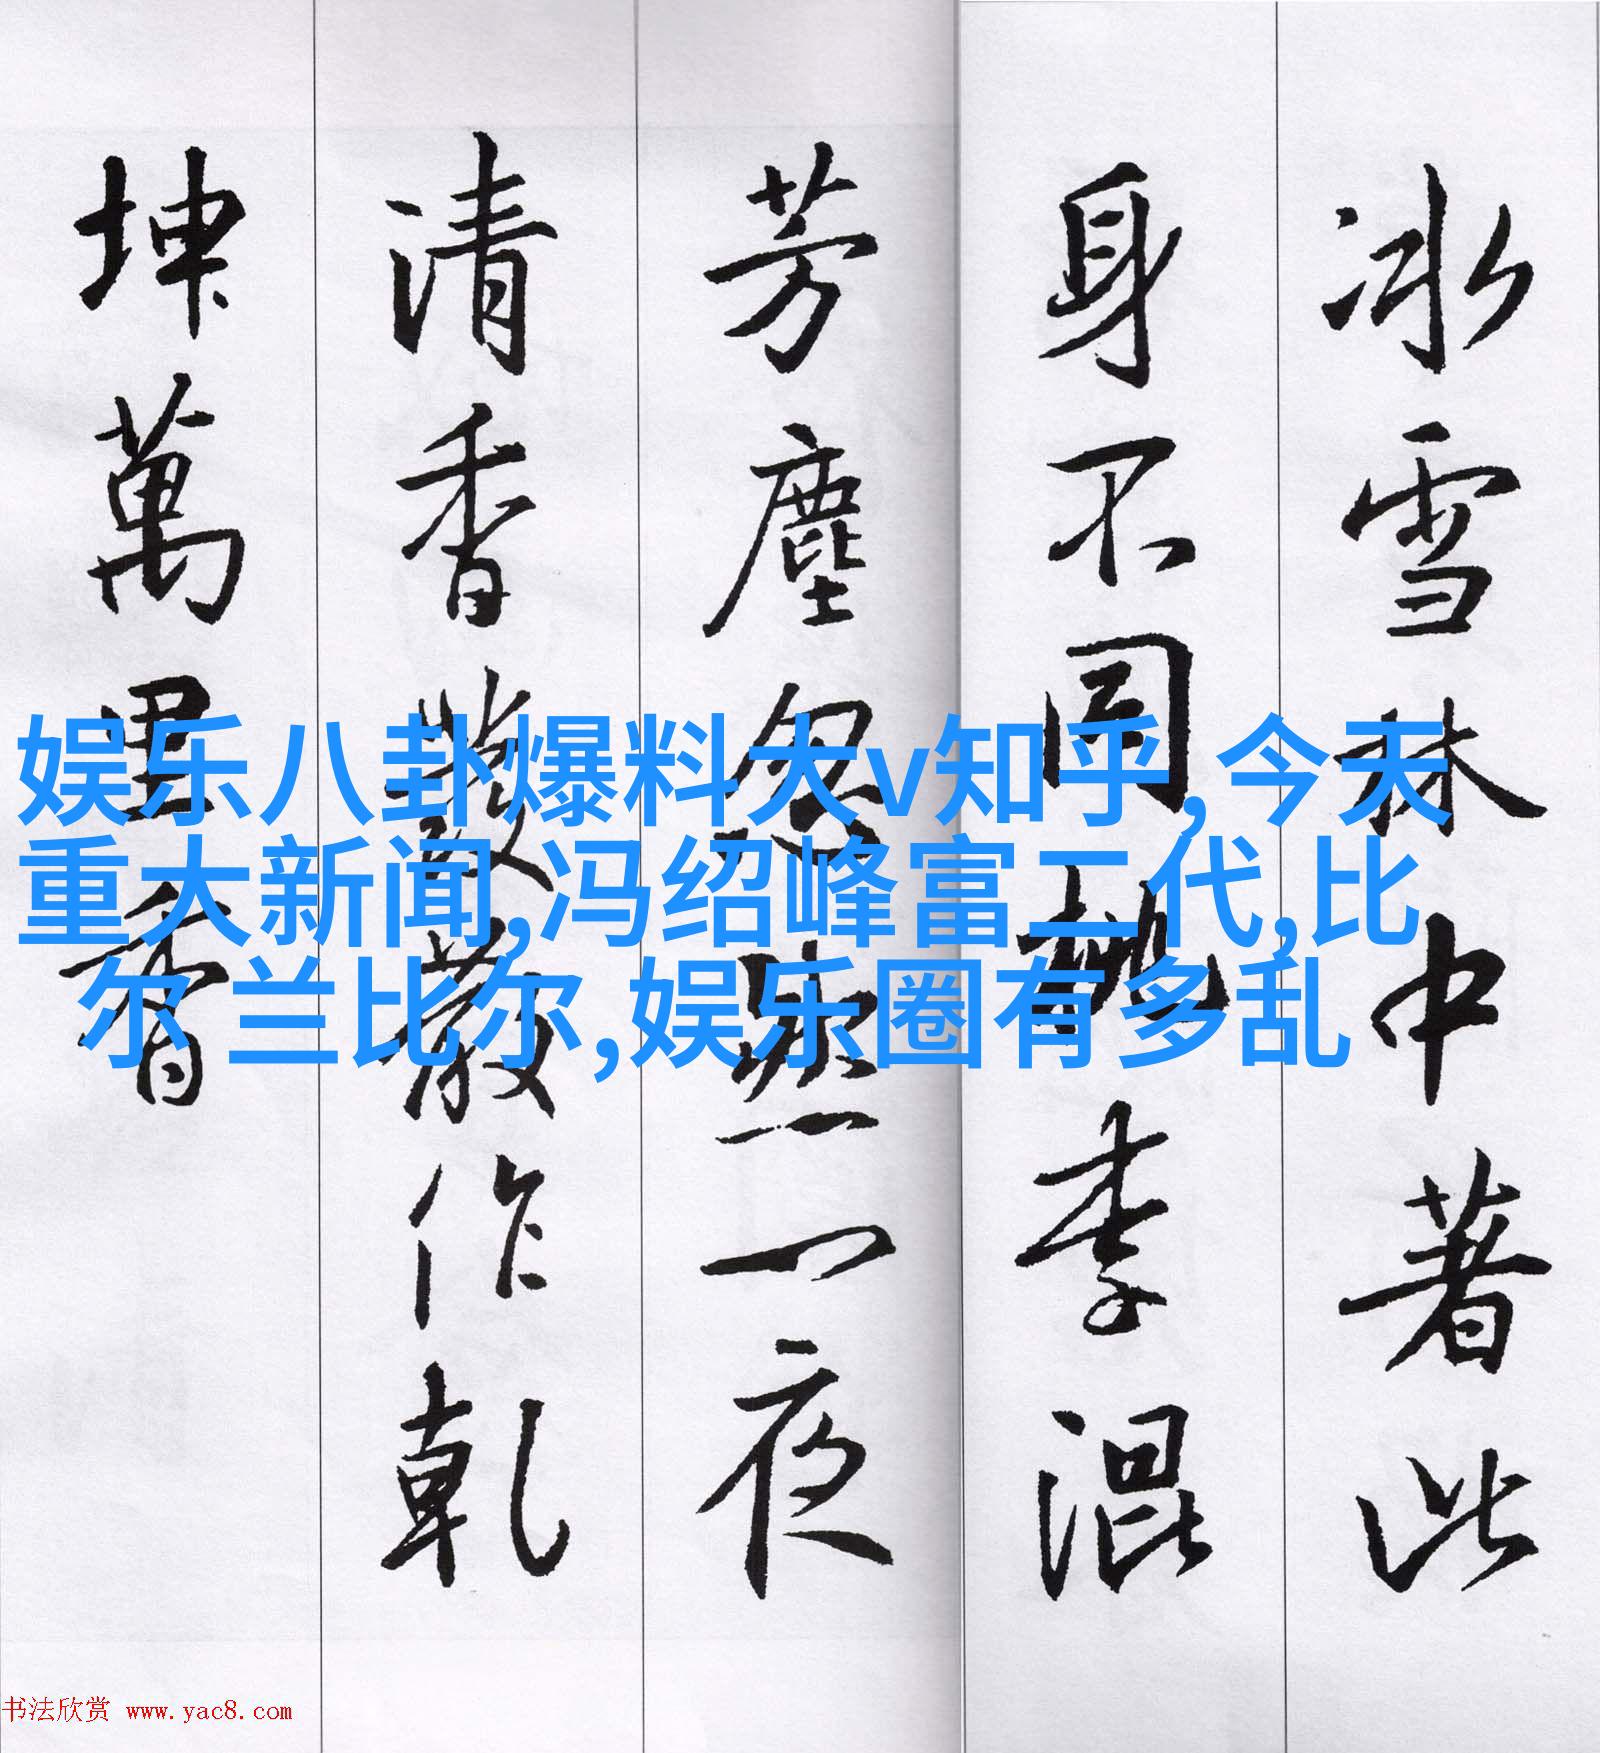 冰雪林中著此
身不同桃李混
芳塵忽然一夜
清香發散作乾
坤萬里香
娱乐八卦爆料大v知乎,今天
重大新闻,冯绍峰富二代,比
尔 兰比尔,娱乐圈有多乱
书法欣赏 www.yac8.com